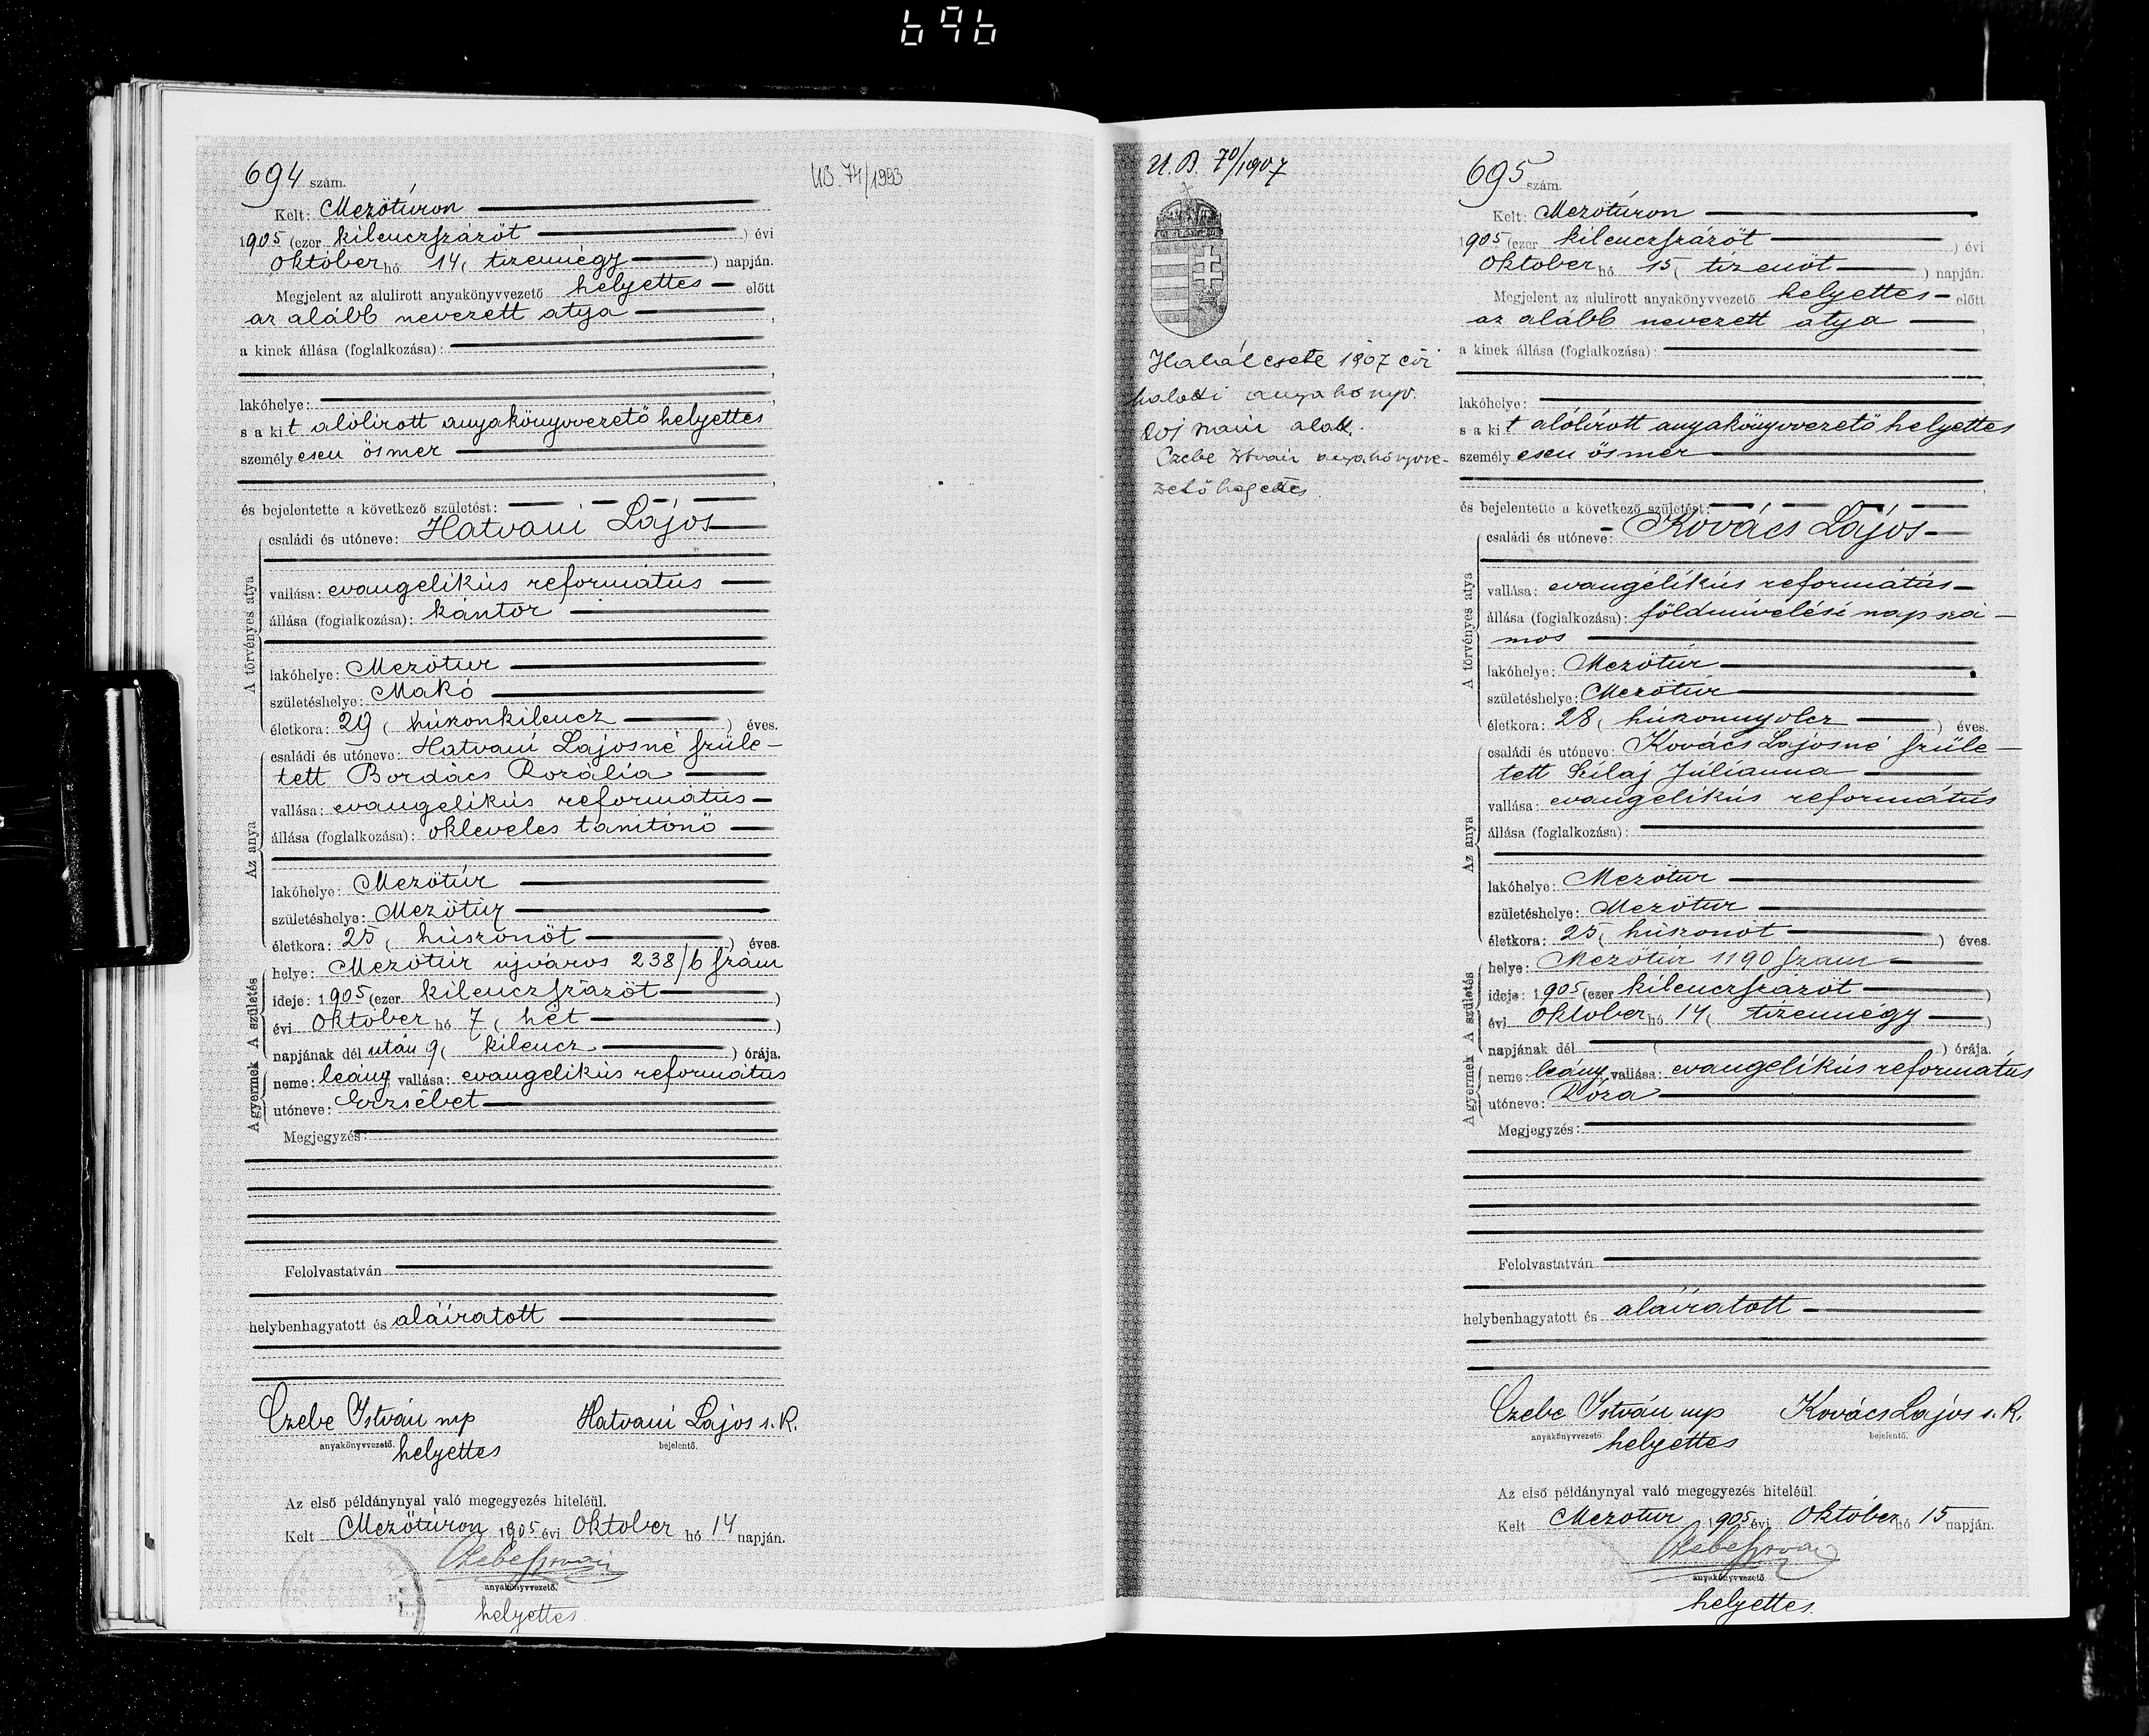 696
694 szám.
UB. 74/1993
Kelt: Mezötúron
1905 (ezer kilenczszázöt) évi
október hó 14 ( tizennégy ) napján.
Megjelent az alulirott anyakönyvvezető helyettes előtt
az alább nevezett atya,
a kinek állása (foglalkozása):
,
lakóhelye: ,
s a kit alólirott anyakönyvvezető helyettes
személyesen ösmer
,
és bejelentette a következő születést:
A törvényes atya
családi és utóneve: Hatvani Lajos
vallása: evangelikús református
állása (foglalkozása): kántor
lakóhelye: Mezötúr
születéshelye: Makó
életkora: 29 ( húszonkilencz ) éves.
Az anya
családi és utóneve: Hatvani Lajosné szüle-
tett Bordács Rozália
vallása: evangelikús református
állása (foglalkozása): okleveles tanitónő
lakóhelye: Mezötúr
születéshelye: Mezötúr
életkora: 25 ( húszonöt ) éves.
A születés
helye: Mezötúr újváros 238/6 szám
ideje: 1905 (ezer kilenczszázöt )
évi október hó 7 ( hét )
napjának dél után 9 ( kilencz ) órája.
A gyermek
neme: leány vallása: evangelikús református
utóneve: Erzsébet
Megjegyzés:
Felolvastatván
helybenhagyatott és aláiratott
Czebe István mp Hatvani Lajos s. k.
anyakönyvvezető. bejelentő.
helyettes
Az első példánynyal való megegyezés hiteléül.
Kelt Mezötúron 1905 évi október hó 14 napján.
Czebe István
anyakönyvvezető.
helyettes.
U. B. 70/1907
Halálesete 1907 évi
halotti anyakönyv.
szám alatt.
Czebe István anyakönyvve-
zető helyettes.
695 szám.
Kelt: Mezötúron
1905 (ezer kilenczszázöt ) évi
október hó 15 ( tizenöt ) napján.
Megjelent az alulirott anyakönyvvezető helyettes előtt
az alább nevezett atya ,
a kinek állása (foglalkozása):
,
lakóhelye: ,
s a kit alólirott anyakönyvvezető helyettes
személyesen ösmer
,
és bejelentette a következő születést:
A törvényes atya
családi és utóneve: Kovács Lajos
vallása: evangélikús református
állása (foglalkozása): földmivelési napszá-
mos
lakóhelye: Mezötúr
születéshelye: Mezötúr
életkora: 28 ( húszonnyolcz ) éves.
Az anya
családi és utóneve: Kovács Lajosné szüle-
tett Szilaj Júliánna
vallása: evangelikús református
állása (foglalkozása):
lakóhelye: Mezötúr
születéshelye: Mezötúr
életkora: 25 ( húszonöt ) éves.
A születés
helye: Mezötúr 1190 szám
ideje: 1905 (ezer kilenczszázöt )
évi október hó 14 ( tizennégy )
napjának dél ( ) órája.
A gyermek
neme: leány vallása: evangelikús református
utóneve: Róza
Megjegyzés:
Felolvastatván
helybenhagyatott és aláiratott
Czebe István mp Kovács Lajos s. k.
anyakönyvvezető. bejelentő.
helyettes
Az első példánynyal való megegyezés hiteléül.
Kelt Mezotur 1905 évi október hó 15 napján.
Czebe István
anyakönyvvezető
helyettes.